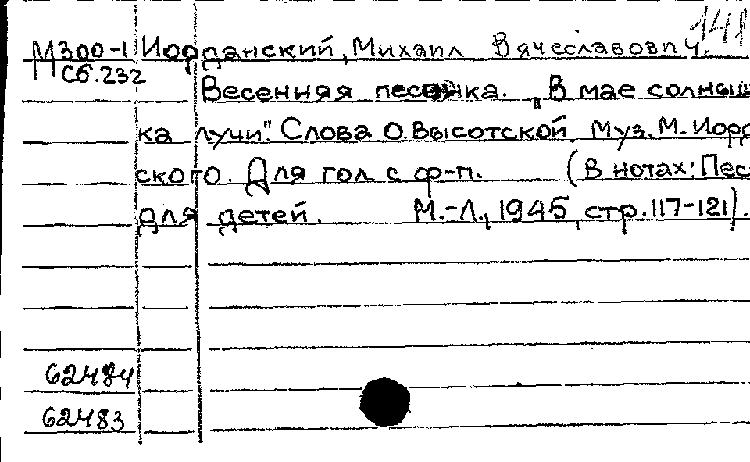 141
М300-1 Иорданский, Михаил Вячеславович.
Сб.232
Весенняя песенка. „В мае солныш
ка лучи". Слова О.Высотской. Муз. М. Иорд
ского. Для гол. с ф-п. (В нотах: Пес
для детей. М.-Л., 1945, стр. 117-121).
62484
62483